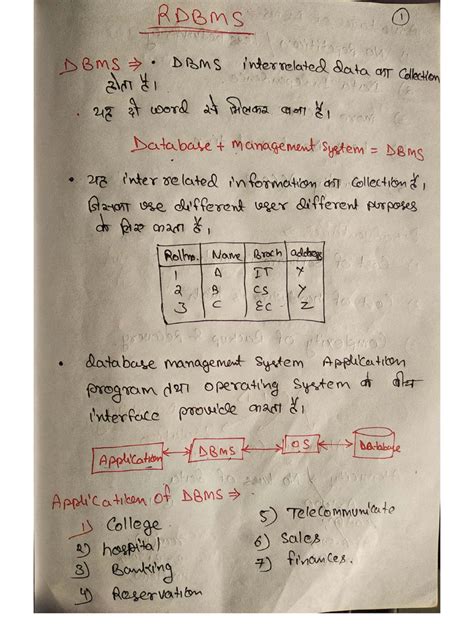 RDBMS
1
DBMS ⇒ • DBMS interrelated data का Collection
होता है।
• यह दो word से मिलकर बना है।
Database + Management System = DBMS
• यह interrelated information का collection है,
जिसका use different user different purposes
के लिए करता है,
Rollno. Name Brach address
1 A IT X
2 B CS Y
3 C EC Z
• database management System Application
program तथा operating System के बीच
interface provide करता है।
Application DBMS OS Database
Application of DBMS ⇒
1) College
2) hospital
3) Banking
4) Reservation
5) Telecommunicato
6) Sales
7) finances.